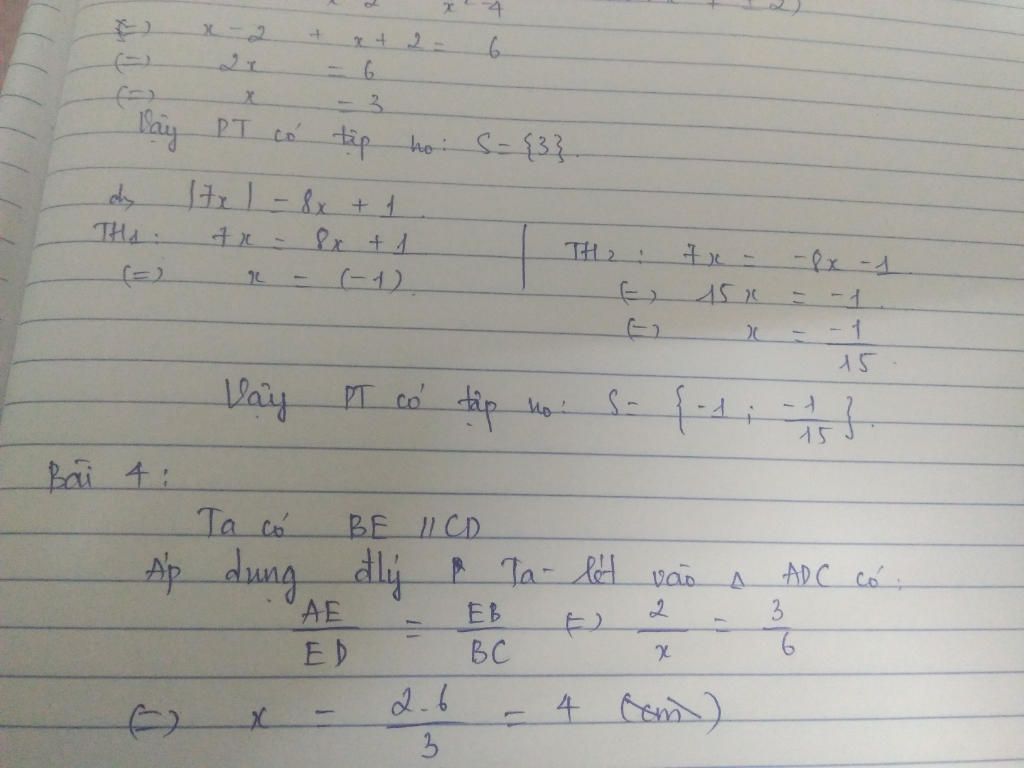 x² - 4
(=) x - 2 + x + 2 = 6
(=) 2x = 6
(=) x = 3
Vậy PT có tập no: S = {3}.
d, |7x| = 8x + 1
TH1: 7x = 8x + 1
(=) x = (-1)
TH2: 7x = -8x - 1
(=) 15x = -1
(=) x = -1/15
Vậy PT có tập no: S = {-1 ; -1/15}.
Bài 4:
Ta có BE // CD
Áp dụng đlý Ta-lét vào △ ADC có:
AE/ED = EB/BC (=) 2/x = 3/6
(=) x = 2.6/3 = 4 (cm)